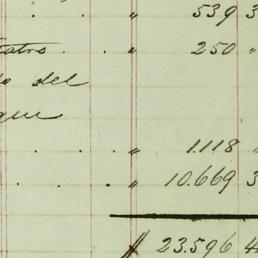 . . " 539 3
tatro . . " 250 "
o del
que
. . . " 1.118 "
. . . " 10.669 3
# 23.596 4